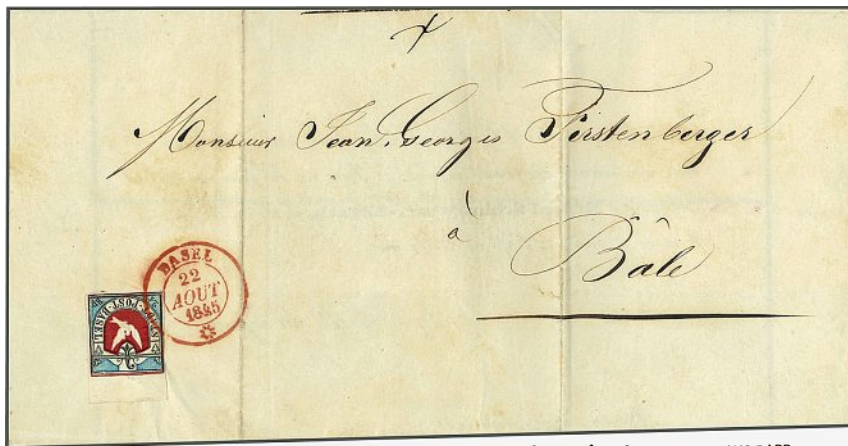 Monsieur Jean Georges Fürstenberger
à
Bâle
BASEL
22
AOUT
1845
STADT-POST-BASEL